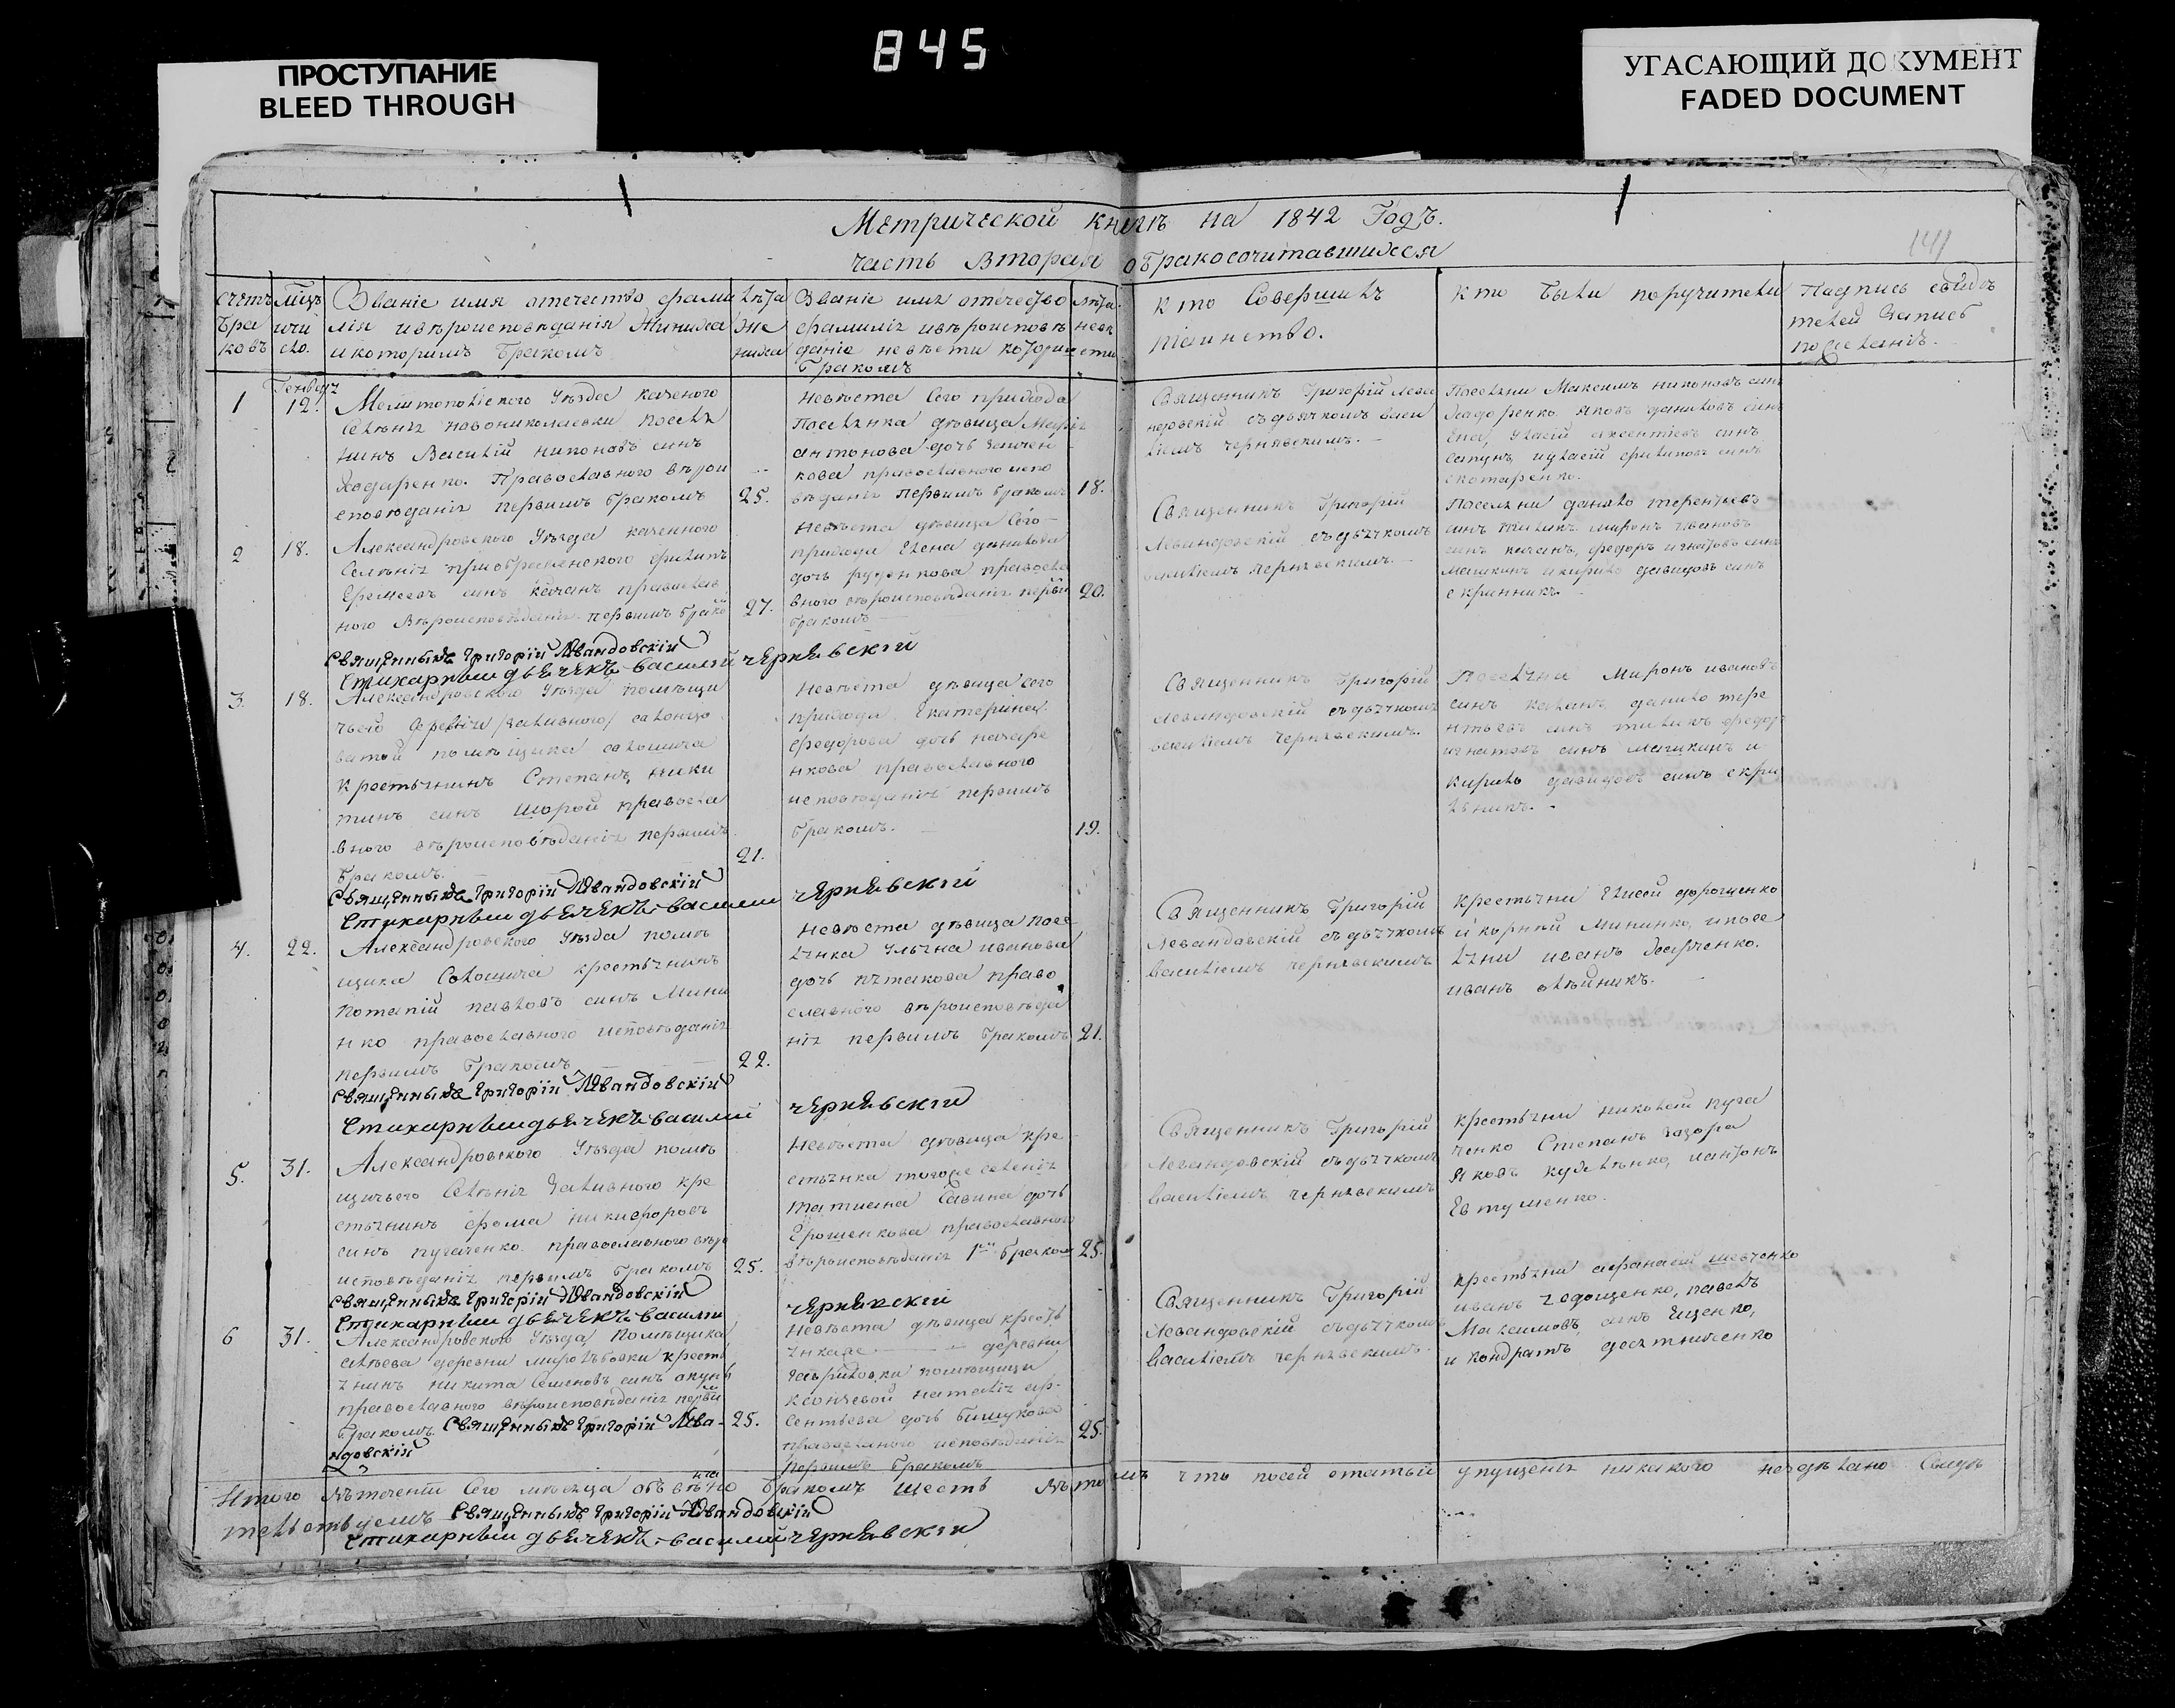 845
ПРОСТУПАНИЕ
BLEED THROUGH
УГАСАЮЩИЙ ДОКУМЕНТ
FADED DOCUMENT
Метрической книгъ на 1842 Годъ.
141
часть вторая о бракосочитавшихся
Счетъ браковъ
Мцъ и число.
Званіе имя отечество фамилія ивѣроисповѣданія Жиниха икоторимъ бракомъ
Лѣта жениха
Званіе имя отечество фамилія ивѣроисповѣданіе невѣсти которимъ бракомъ
Лѣта невѣсти
кто Совершилъ таинство.
кто были поручители
Надпись свидѣтелей Записѣ
1
Генваря
12.
Мелитопольского Уѣзда казеного
Селѣнія новониколаевки Поселя
нинъ Василій никоновъ синъ
Ходаренко. Православного вѣрои
сповѣданія первимъ бракомъ
25.
Невѣста Сего прихода
Поселянка дѣвица Марія
антонова дочь
кова православного испо
вѣданія первимъ бракомъ
18.
Священникъ Григорій Лева
ндовскій съдьячкомъ васи
ліемъ чернявскимъ.
Поселяни Максимъ никоновъ синъ
Ходоренко. Яковъ даниловъ синъ
аксентіевъ синъ
сапунъ, филиповъ синъ
скотаренко.
2
18.
Александровского Уѣзда казенного
Селѣнія преображенского филипъ
Еремеевъ синъ Качанъ православ
ного Вѣроисповѣданія первимъ брако
27.
Невѣста дѣвица Сего
прихода Елена данилова
дочь руденкова правосла
вного вѣроисповѣданія перви
бракомъ
20.
Священникъ Григорій
Левандовскій съдьячкомъ
василіемъ чернявскимъ.
Поселяни данило терентьевъ
синъ миронъ ивановъ
синъ качанъ, федоръ игнатовъ синъ
машкинъ икирило давидовъ синъ
скринникъ.
Священникъ Григорій Левандовскій
Стихарный дьячекъ василій чернявскій
3.
18.
Александровского Уѣзда помѣщи
чьего Деревни /заливного/ солонцо
ватой помѣщика
Крестьянинъ Степанъ ники
тинъ синъ Шорой правосла
вного вѣроисповѣданія первимъ
бракомъ.
21.
Невѣста дѣвица сего
прихода Екатерина
федорова дочь назаре
нкова православного
исповѣданія первимъ
бракомъ.
19.
Священникъ Григорій
Левандовскій съдьячкомъ
василіемъ чернявскимъ.
Поселяни Миронъ ивановъ
синъ качанъ данило тере
нтьевъ синъ федоръ
игнатовъ синъ машкинъ и
кирило давидовъ синъ скри
никъ.
Священникъ Григорій Левандовскій
Стихарный дьячекъ василій чернявскій
4.
22.
Александровского Уѣзда помѣ
щика крестьянинъ
Потапій павловъ синъ Мини
нко православного исповѣданія
первимъ бракомъ
22.
Невѣста дѣвица посе
лянка Ульяна иванова
дочь пятакова право
славного вѣроисповѣда
нія первимъ бракомъ
21.
Священникъ Григорій
Левандовскій съдьячкомъ
василіемъ чернявскимъ
крестьяни Елисей дорошенко
и корній Мининко, ипосе
ляни иванъ Харченко.
иванъ олѣйникъ.
Священникъ Григорій Левандовскій
Стихарный дьячекъ василій чернявскій
5.
31.
Александровского Уѣзда помѣ
щичьего Селѣнія Заливного кре
стьянинъ фома никифоровъ
синъ пугаченко. православного вѣро
исповѣданія первимъ бракомъ
25.
Невѣста дѣвица кре
стьянка тогоже селенія
татиана Савина дочь
Ерошенкова православного
вѣроисповѣданія 1мъ бракомъ
25.
Священникъ Григорій
Левандовскій съдьячкомъ
василіемъ чернявскимъ
крестьяни николай пуга
ченко Степанъ
Яковъ иантонъ
Евтушенко.
Священникъ Григорій Левандовскій
Стихарный дьячекъ василій
чернявскій
6
31.
Александровского Уѣзда, Помѣщика
деревни миролюбовки кресть
янинъ никита Семеновъ синъ
православного вѣроисповѣданія перви
бракомъ. Священникъ Григорій Лева-
ндовскій
25.
Невѣста дѣвица кресть
янка деревни
гавриловки помѣщици
наталія ар-
сентьева дочь бишукова
православного исповѣданія
первимъ бракомъ
25.
Священникъ Григорій
Левандовскій съдьячкомъ
василіемъ чернявскимъ.
крестьяни афанасій шевченко
иванъ павелъ
Максимовъ синъ Ященко,
и кондратъ десятниченко
Итого втечении Сего мѣсяца бракомъ шесть въ томъ что посей статьи упущенія никакого несдѣлано Свидѣ
тельствуемъ Священникъ Григорій Левандовскій
Стихарный дьячекъ василій чернявскій